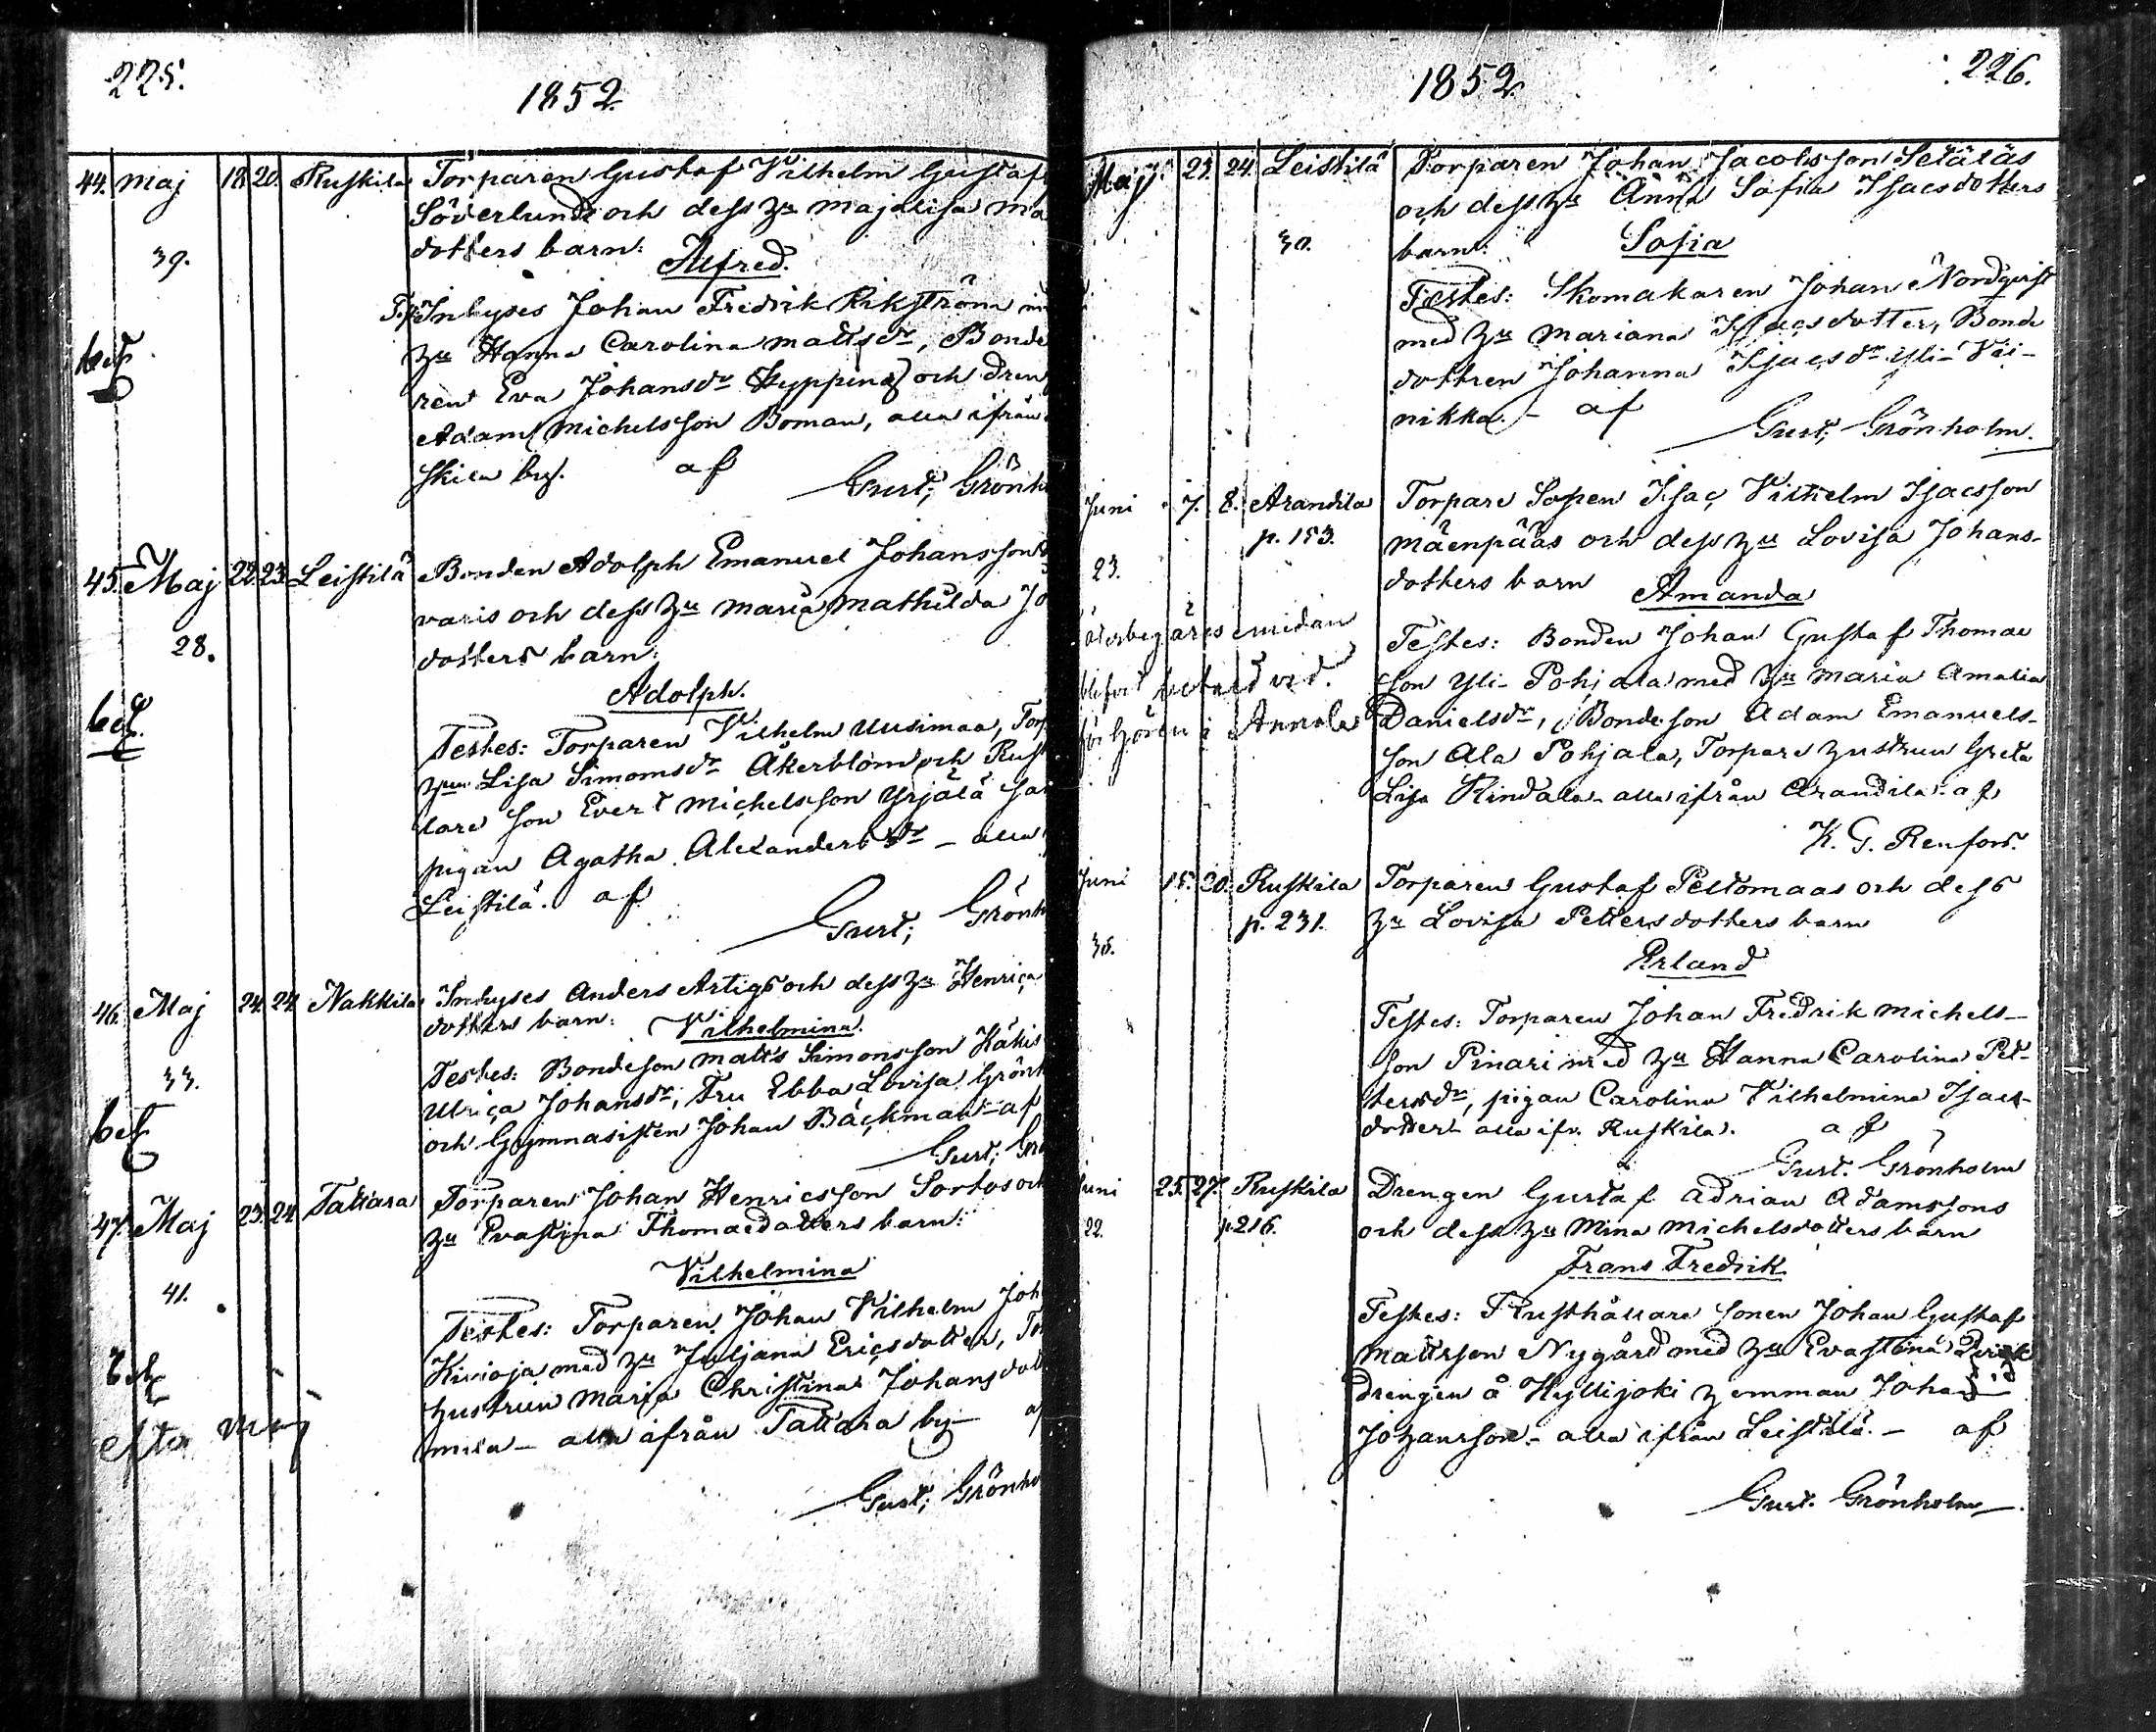 225.
1852
44. Maj 18. 20. Ruskila Torparen Gustaf Vilhelm Gustafs
Söderlunds och dess hu Majalisa Ma
dotters barn:
39.
Alfred.
Inhyses Johan Fredrik Rikström m
bet
hu Hanna Carolina Mattsdr, Bonde
ren Eva Johansdr Kypping och dren
Adam Michelsson Boman, alla ifrån
skila by. af
Gust; Grönh
45. Maj 22. 23. Leistilä Bonden Adolph Emanuel Johansson
varis och dess hu Maria Mathilda Jo
28.
dotters barn:
Adolph.
bet.
Testes: Torparen Vilhelm Uusimaa, Torp
hun Lisa Simonsdr Åkerblom och Rust
lare son Evert Michelsson Yrjälä sa
pigan Agatha Alexandersdr - alla
Leistilä. af
Gust; Grönh
46. Maj 24. 24. Nakkila Inhyses Anders Artigs och dess hu Henrica
dotters barn: Vilhelmina.
33.
Testes: Bondeson Matts Simonsson Käkis
Ulrica Johansdr, Fru Ebba Lovisa Grönh
bet
och Gymnasisten Johan Bäckman - af
Gust; Grö
47. Maj 23. 24. Tattara Torparen Johan Henricsson Sortos och
hu Evastina Thomaedotters barn:
Vilhelmina
41.
Testes: Torparen Johan Vilhelm Joh
Kinioja med hu Juljana Ericsdotter, To
bet
hustrun Maria Christina Johansdot
mila - alla ifrån Tattara by - a
efter
Gust; Grönho
1852
226.
Maj 23. 24. Leistilä Torparen Johan Jacobsson Setäläs
och dess hu Anna Sofia Isacsdotters
30.
barn: Sofia
Testes: Skomakaren Johan Nordqvist
med hu Mariana Isacsdotter, Bonde
dottren Johanna Isacsdr Yli-Vii-
nikka. - af
Gust; Grönholm.
Juni 7. 8. Arandila Torpare Sonen Isac Vilhelm Isacsson
p. 153.
Mäenpääs och dess hu Lovisa Johans-
23.
dotters barn Amanda
återbegäres emedan
Testes: Bonden Johan Gustaf Thomae
blifvit betald vid
son Yli-Pohjala med hu Maria Amalia
förhören i Annola
Danielsdr, Bondeson Adam Emanuels-
son Ala Pohjala, Torpare hustrun Greta
Lisa Kindala - alla ifrån Arandila - af
K. G. Renfors.
Juni 15. 20. Ruskila Torparen Gustaf Peltomaas och dess
p. 231.
hu Lovisa Pettersdotters barn
36.
Erland
Testes: Torparen Johan Fredrik Michels-
son Pinari med hu Hanna Carolina Pet-
tersdr, pigan Carolina Vilhelmina Isacs-
dotter - alla ifr. Ruskila. af
Gust. Grönholm
Juni 25. 27. Ruskila Drengen Gustaf Adrian Adamssons
22.
p. 216.
och dess hu Mina Michelsdotters barn
Frans Fredrik
Testes: Rusthållare sonen Johan Gustaf
Mattsson Nygård med hu Evastina
drengen å Hyllijoki hemman Johan
Johansson - alla ifrån Leistilä. - af
Gust. Grönholm